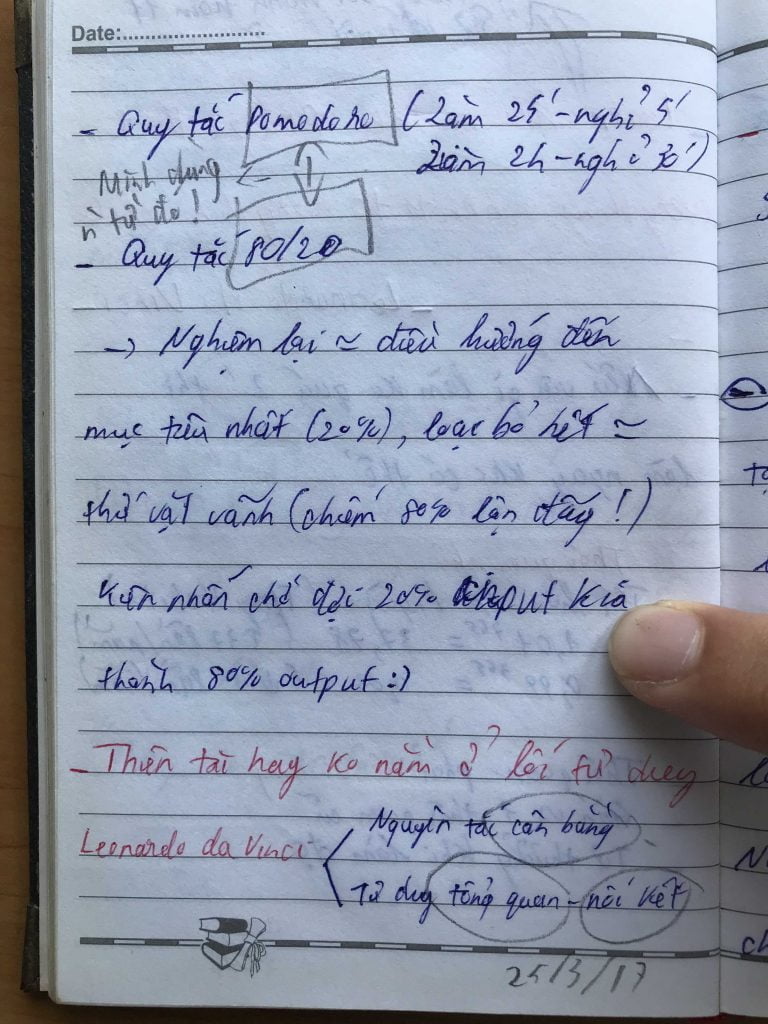 Date:
- Quy tắc Pomodoro (Làm 25' - nghỉ 5'
Làm 2h - nghỉ 30')
Mình dùng
từ đó!
- Quy tắc 80/20
→ Nghiệm lại ≃ điều hướng đến
mục tiêu nhất (20%), loại bỏ hết ≃
thứ vặt vãnh (chiếm 80% lận đấy!)
Kiên nhẫn chờ đợi 20% input kia
thành 80% output :)
- Thiên tài hay ko nằm ở lối tư duy
Leonardo da Vinci
Nguyên tắc cân bằng
Tư duy tổng quan - nối kết
25/3/17